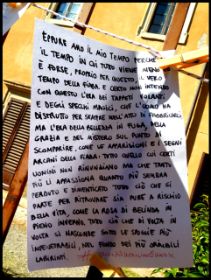 EPPURE AMO IL MIO TEMPO PERCHÉ È
IL TEMPO IN CUI TUTTO VIENE MENO ED
È FORSE, PROPRIO PER QUESTO, IL VERO
TEMPO DELLA FIABA. E CERTO NON INTENDO
CON QUESTO L'ERA DEI TAPPETI VOLANTI
E DEGLI SPECCHI MAGICI, CHE L'UOMO HA
DISTRUTTO PER SEMPRE NELL'ATTO DI FABBRICARLI
MA L'ERA DELLA BELLEZZA IN FUGA, DELLA
GRAZIA E DEL MISTERO SUL PUNTO DI
SCOMPARIRE, COME LE APPARIZIONI E I SEGNI
ARCANI DELLA FIABA: TUTTO QUELLO CUI CERTI
UOMINI NON RINUNCIANO MAI, CHE TANTO
PIÙ LI APPASSIONA QUANTO PIÙ SEMBRA
PERDUTO E DIMENTICATO. TUTTO CIÒ CHE SI
PARTE PER RITROVARE SIA PURE A RISCHIO
DELLA VITA, COME LA ROSA DI BELINDA IN
PIENO INVERNO. TUTTO CIÒ CHE DI VOLTA IN
VOLTA SI NASCONDE SOTTO LE SPOGLIE PIÙ
IMPENETRABILI, NEL FONDO DEI PIÙ ORRIBILI
LABIRINTI.